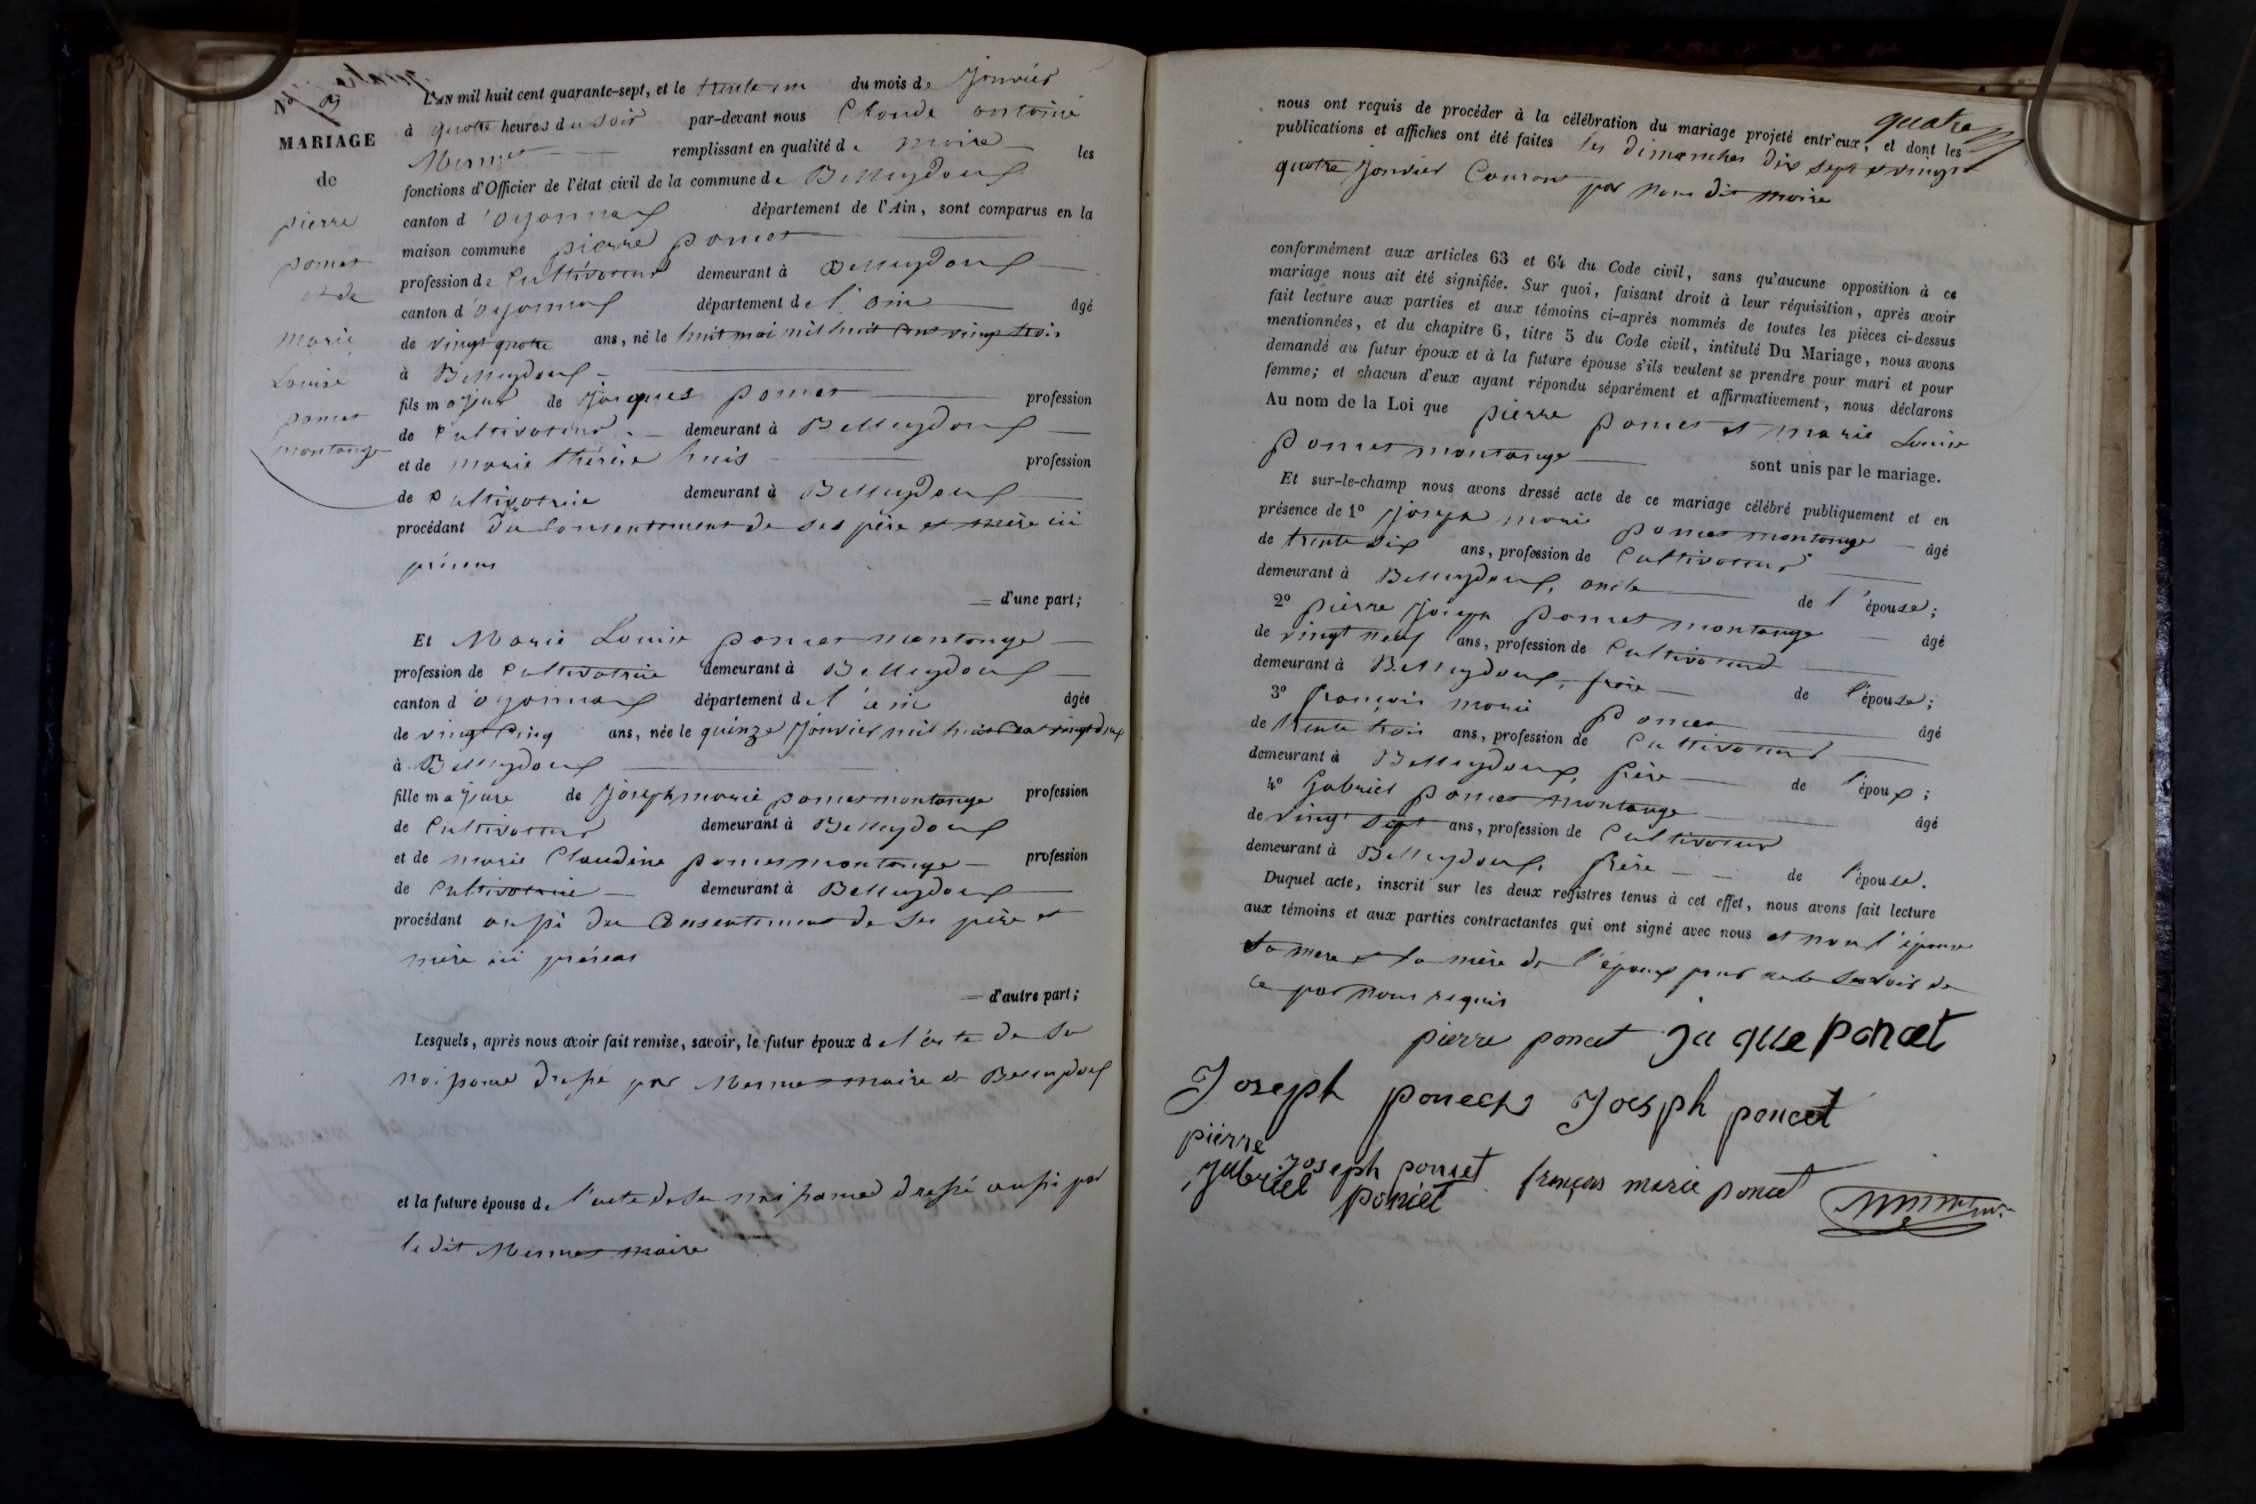 MARIAGE
de
pierre
poncet
et de
marie
Louise
poncet
montange
L'AN mil huit cent quarante-sept, et le trente un du mois de Janvier
à quatre heures du soir par-devant nous Claude antoine
Mermet remplissant en qualité de maire les
fonctions d'Officier de l'état civil de la commune de Belleydoux
canton d'oyonnax département de l'Ain, sont comparus en la
maison commune pierre poncet
profession de Cultivateur demeurant à Belleydoux
canton d'oyonnax département de l'ain âgé
de vingt quatre ans, né le huit mai mil huit cent vingt trois
à Belleydoux
fils majeur de Jacques poncet profession
de Cultivateur demeurant à Belleydoux
et de marie thérèse huis profession
de Cultivatrice demeurant à Belleydoux
procédant du consentement de ses père et mère ici
présens
d'une part;
Et Marie Louise poncet montange
profession de Cultivatrice demeurant à Belleydoux
canton d'oyonnax département de l'ain âgée
de vingt cinq ans, née le quinze Janvier mil huit cent vingt deux
à Belleydoux
fille majeure de Joseph marie poncet montange profession
de Cultivateur demeurant à Belleydoux
et de marie Claudine poncet montange profession
de Cultivatrice demeurant à Belleydoux
procédant aussi du Consentement de ses père et
mère ici présens
d'autre part;
Lesquels, après nous avoir fait remise, savoir, le futur époux de l'acte de sa
naissance dressé par Mermet maire de Belleydoux
et la future épouse de l'acte de sa naissance dressé aussi par
le dit Mermet maire
nous ont requis de procéder à la célébration du mariage projeté entr'eux, et dont les
quatre
publications et affiches ont été faites les dimanches dix sept et vingt
quatre Janvier Courant par nous dit maire
conformément aux articles 63 et 64 du Code civil, sans qu'aucune opposition à ce
mariage nous ait été signifiée. Sur quoi, faisant droit à leur réquisition, après avoir
fait lecture aux parties et aux témoins ci-après nommés de toutes les pièces ci-dessus
mentionnées, et du chapitre 6, titre 5 du Code civil, intitulé Du Mariage, nous avons
demandé au futur époux et à la future épouse s'ils veulent se prendre pour mari et pour
femme; et chacun d'eux ayant répondu séparément et affirmativement, nous déclarons
Au nom de la Loi que pierre poncet et marie Louise
poncet montange sont unis par le mariage.
Et sur-le-champ nous avons dressé acte de ce mariage célébré publiquement et en
présence de 1º Joseph marie poncet montange âgé
de trente six ans, profession de Cultivateur
demeurant à Belleydoux, oncle de l'épouse;
2º pierre Joseph poncet montange âgé
de vingt neuf ans, profession de Cultivateur
demeurant à Belleydoux, frère de l'épouse;
3º françois marie poncet âgé
de trente trois ans, profession de Cultivateur
demeurant à Belleydoux, frère de l'époux;
4º Gabriel poncet montange âgé
de vingt sept ans, profession de Cultivateur
demeurant à Belleydoux, frère de l'épouse.
Duquel acte, inscrit sur les deux registres tenus à cet effet, nous avons fait lecture
aux témoins et aux parties contractantes qui ont signé avec nous et non l'épouse
sa mere et la mère de l'époux pour ne le savoir de
ce par nous requis
pierre poncet ja que poncet
Joseph poncet Joesph poncet
pierre joseph poncet françois marie poncet
gabriel poncet